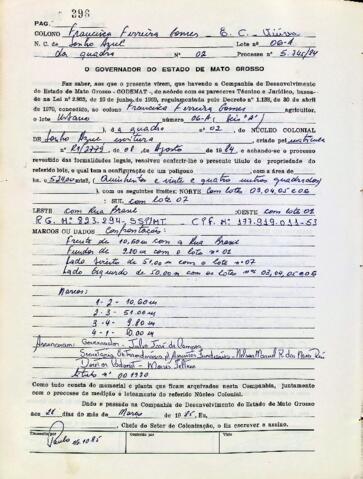 PAG. 396
COLONO Francisco Ferreira Gomes - E. C. - Vieira
N. C. de Sonho Azul Lote nº 06-A
da quadra Nº 02 Processo nº 5.245/84
O GOVERNADOR DO ESTADO DE MATO GROSSO
Faz saber, aos que o presente virem, que havendo a Companhia de Desenvolvimento
do Estado de Mato Grosso - CODEMAT -, de acordo com os pareceres Técnico e Jurídico, baseada
na Lei nº 2.925, de 19 de junho de 1969, regulamentada pelo Decreto nº 1.138, de 30 de abril
de 1970, foi concedido, ao colono Francisco Ferreira Gomes
o lote Urbano agrícola nº 06-A (Seis "A")
da quadra nº 02 do NÚCLEO COLONIAL
DE Sonho Azul criado pela
nº R1/2779 de 08 de Agosto de 1984, e achando-se o processo
revestido das formalidades legais, resolveu conferir-lhe o presente título de propriedade do
referido lote, o qual tem a configuração de um polígono com a área de
com os seguintes limites: NORTE com lotes 03,04,05 e 06
SUL com lote 07
LESTE com Rua Brasil OESTE com lote 01
R.G. Nº 893.294-SSP/MT C.P.F. Nº 177.919.011-53
MARCOS OU DADOS Confrontações:
Frente de 10,60m com a Rua Brasil
Fundos de 9,80m com o lote nº 01
Lado direito de 51,00m com o lote nº 07
Lado Esquerdo de 50,00m com os lotes nºs 03,04,05 e 06
Marcos:
1-2 - 10,60m
2-3 - 51,00m
3-4 - 9,80m
4-1 - 10,00m
Assinaram: Governador - Julio José de Campos
Título nº 001920
Como tudo consta do memorial e planta que ficam arquivados nesta Companhia, juntamente
com o processo de medição e loteamento do referido Núcleo Colonial.
Dado e passado na Companhia de Desenvolvimento do Estado de Mato Grosso
aos 21 dias do mês de Março de 1985. Eu,
, Chefe do Setor de Colonização, o fiz escrever e assino.